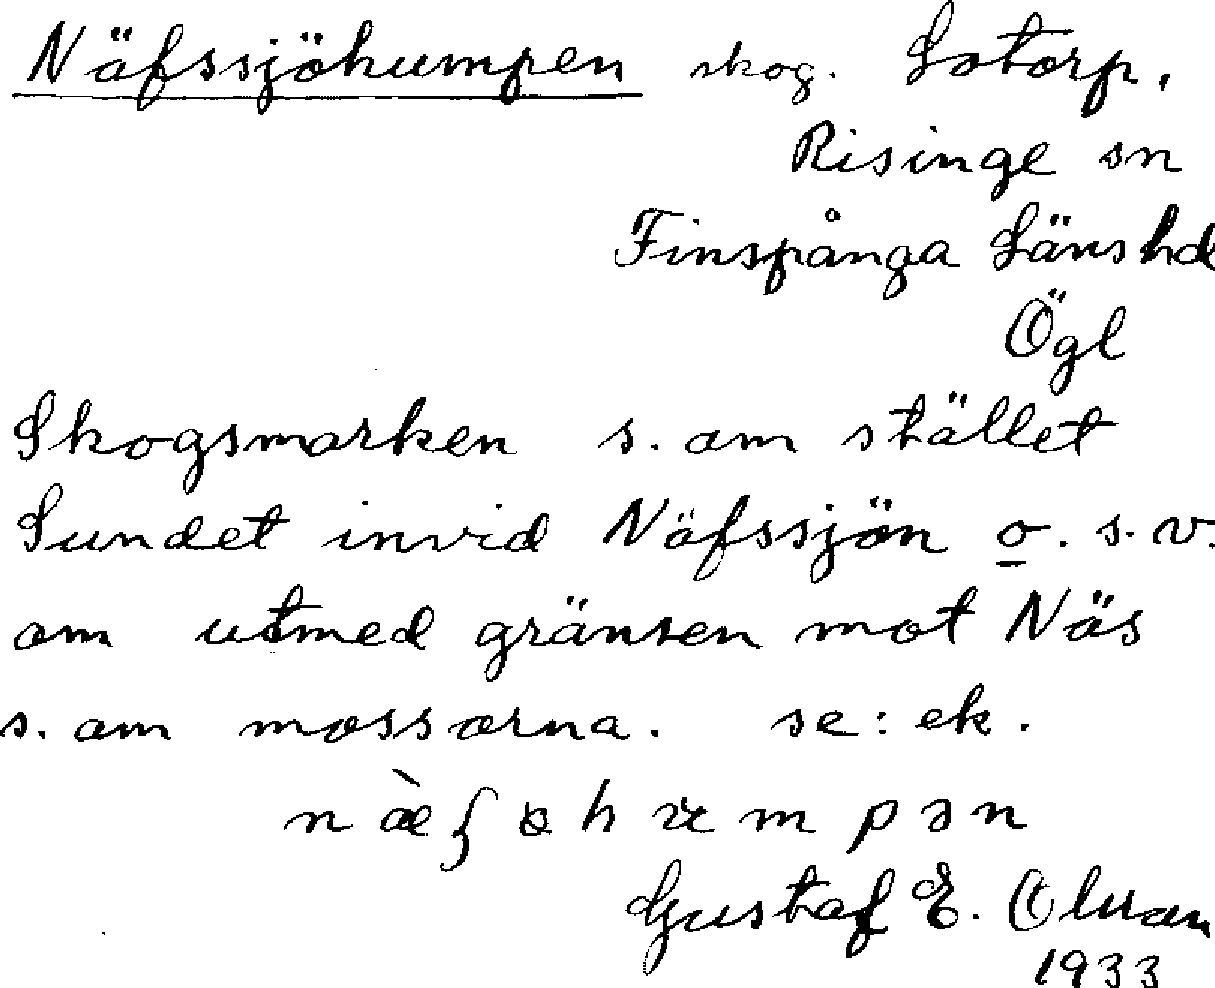 Näfssjöhumpen skog. Lotorp.
Risinge sn
Finspånga Länshd
Ögl
Skogsmarken s. om stället
Sundet invid Näfssjön o. s.v.
om utmed gränsen mot Näs
s. om mossorna. se: ek.
Gustaf E. Olsson
1933